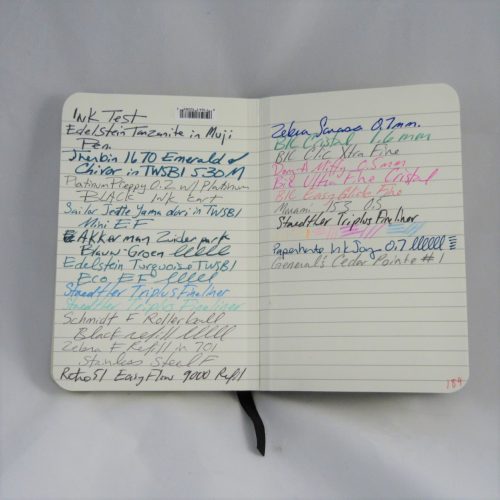 INK TEST
Edelstein Tanzanite in Muji
Pen
J Herbin 1670 Emerald of
Chivor in TWSBI 530 M
Platinum Preppy 0.2 w/ Platinum
BLACK INK Cart
Sailor Jentle Yama dori in TWSBI
Mini EF
Akkerman Zuiderpark
Blauw-Groen
Edelstein Turquoise TWSBI
Eco EF
Staedtler Triplus Fineliner
Staedtler Triplus Fineliner
Schmidt F Rollerball
Black refill
Zebra F Refill in 701
Stainless Steel F
Retro 51 Easy Flow 9000 Refill
Zebra Sarasa 0.7mm.
BIC Cristal 1.6 mm
BIC Clic Xtra Fine
0.5mm
BIC Ultra Fine Cristal
BIC Easy Glide Fine
0.5
Staedtler Triplus Fineliner
Papermate InkJoy 0.7
General's Cedar Pointe #1
184